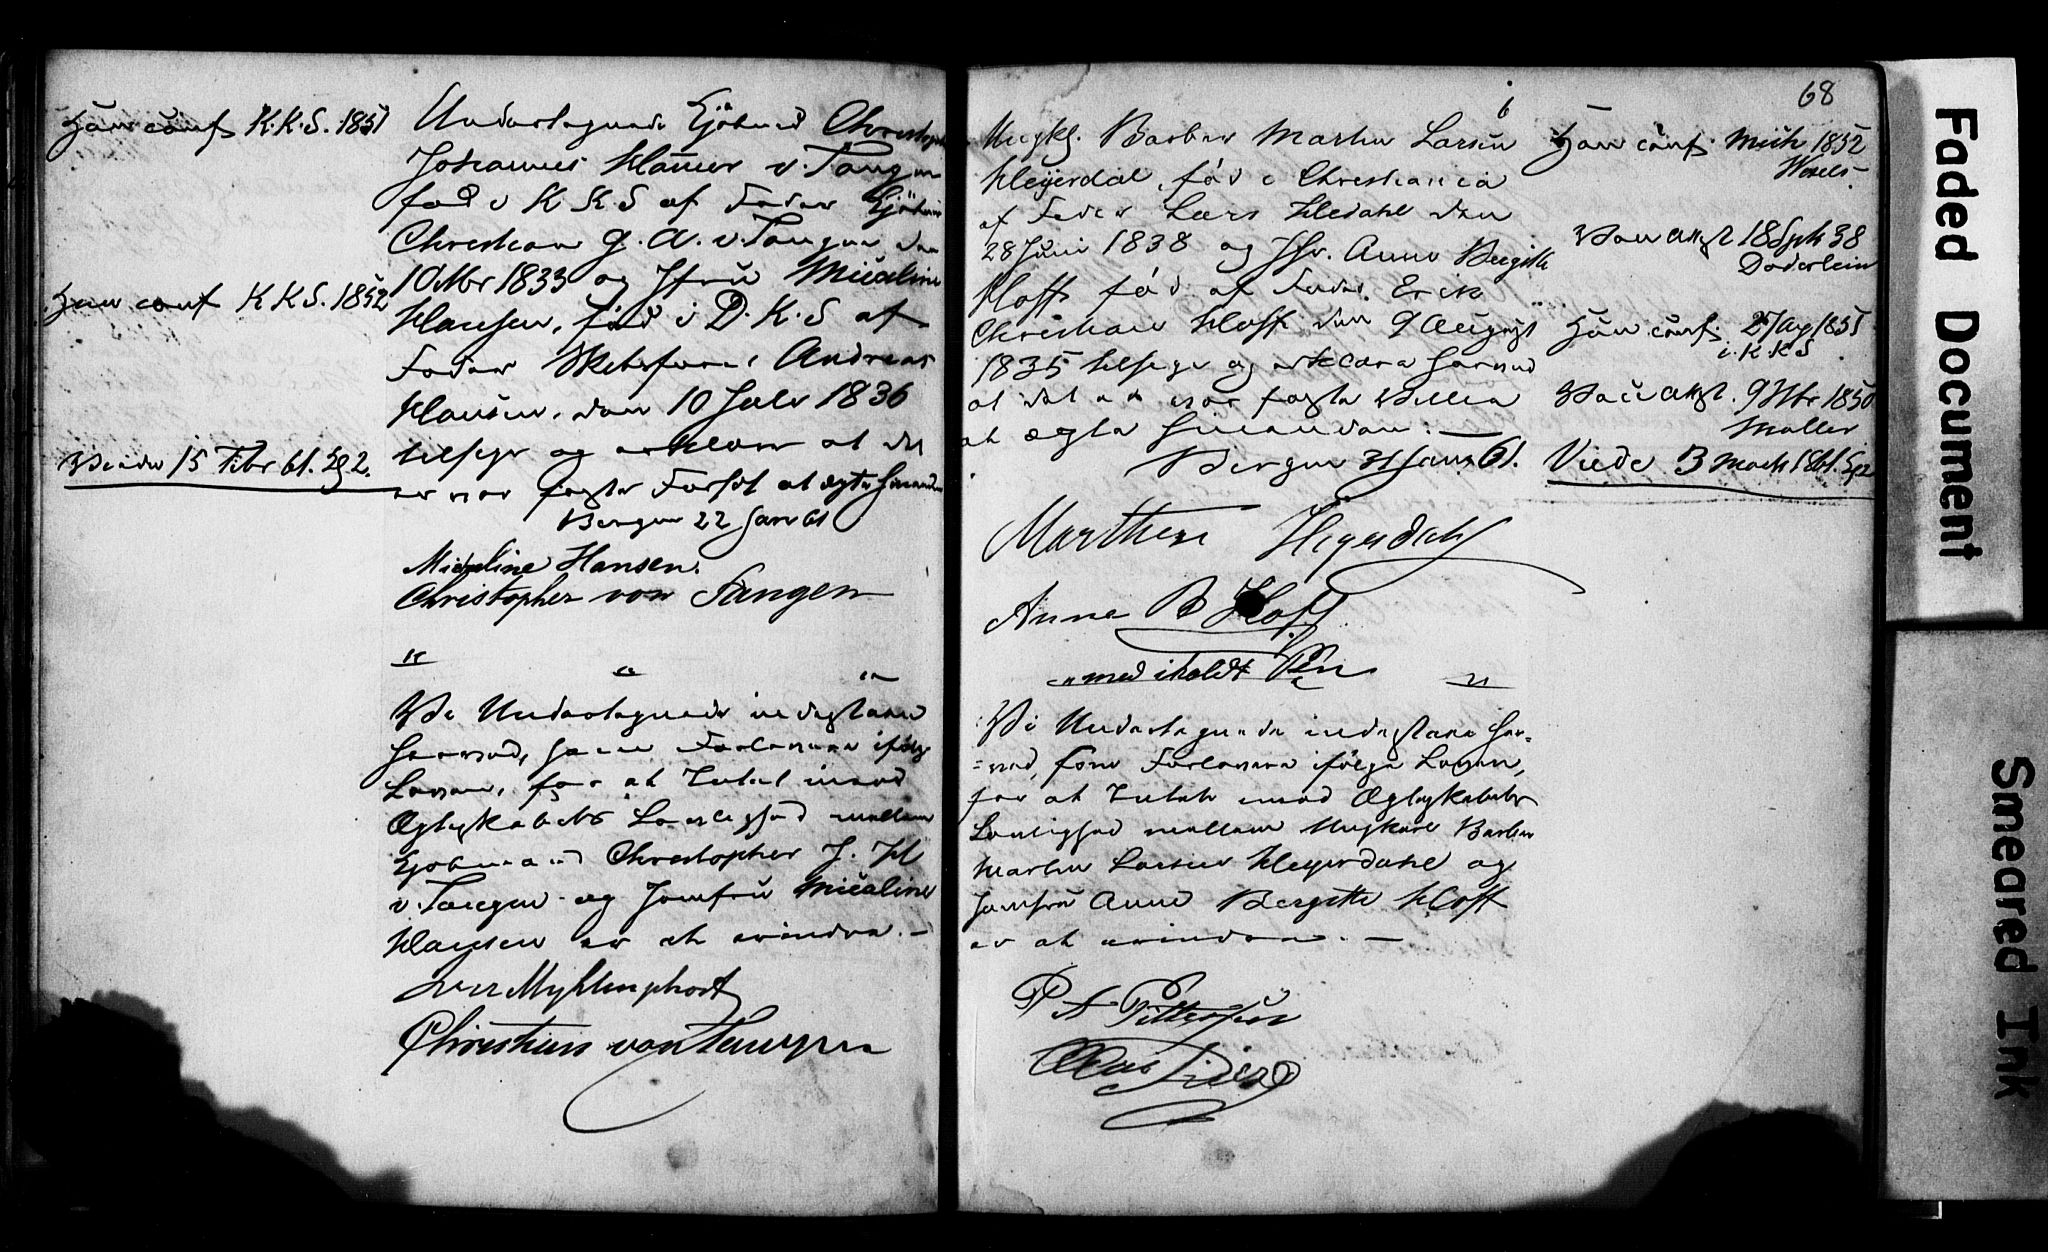 Han conf K.K.S. 1851
Hun conf K K S. 1852
Viede 15 Febr 61. Sg 2.
Undertegnede Kjøbmd Christoph
Johannes Hammer v. Tangen
fød i K K S af Fader Kjøbm
Christian G. A. v. Tangen den
10 Mbr 1833 og Jfru Micaline
Hansen, fød i D. K. S af
Fader Andreas
Hansen, den 10 Juli 1836
tilsige og erklære at det
er vor faste Forsæt at ægte hinanden
Bergen 22 Jan 61
Micaline Hansen.
Christopher von Tangen
" " "
Vi Undertegnede indestaae
herved, som Forlovere ifølge
Loven, for at Intet imod
Ægteskabets Lovlighed mellem
Kjøbmand Christopher J. H
v. Tangen og Jomfru Micaline
Hansen er at erindre. –
Christian von Tangen
68
Ungkl. Barber Martin Larsen
Heyerdal, fød i Christiania
af Fader Lars Hedahl den
28 Juni 1838 og Jfr. Anne Bergitte
Hoff fød af Fader Erik
Christian Hoff den 9 August
1835 tilsige og erklære herved
at det er vor faste Villie
at ægte hinanden. –
Bergen 31 Jan 61.
Marthin Heyerdahl
Anne B Hoff
" med iholdt Pen "
Vi Undertegnede indestaae her=
=ved, som Forlovere ifølge Loven,
for at Intet imod Ægteskabets
Lovlighed mellem Ungkarl Barber
Martin Larsen Heyerdahl og
Jomfru Anne Bergitte Hoff
er at erindre. –
P A Pettersen
Han conf. Mich 1852
Wesels
Vacc attst 18 Spt 38
Døderlein
Hun conf. 1851
i K.K.S
Vacc attst. 1850
Møller
Viede 3 March 1861. Sg 2
Faded Document
Smeared Ink